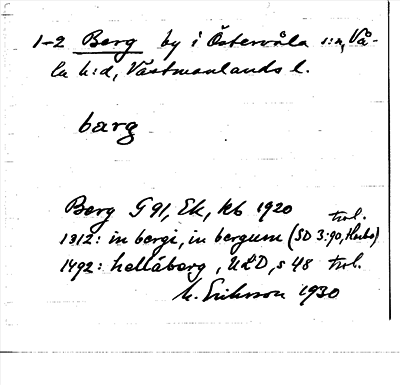 1-2 Berg by i Östervåla s:n, Vå-
la h:d, Västmanlands l.
barg
Berg G 91, Ek, kb 1920
trol.
1312: in bergi, in bergum (SD 3:90, Harbo)
1492: hellåberg, ULD, s 48 trol.
M. Eriksson 1930